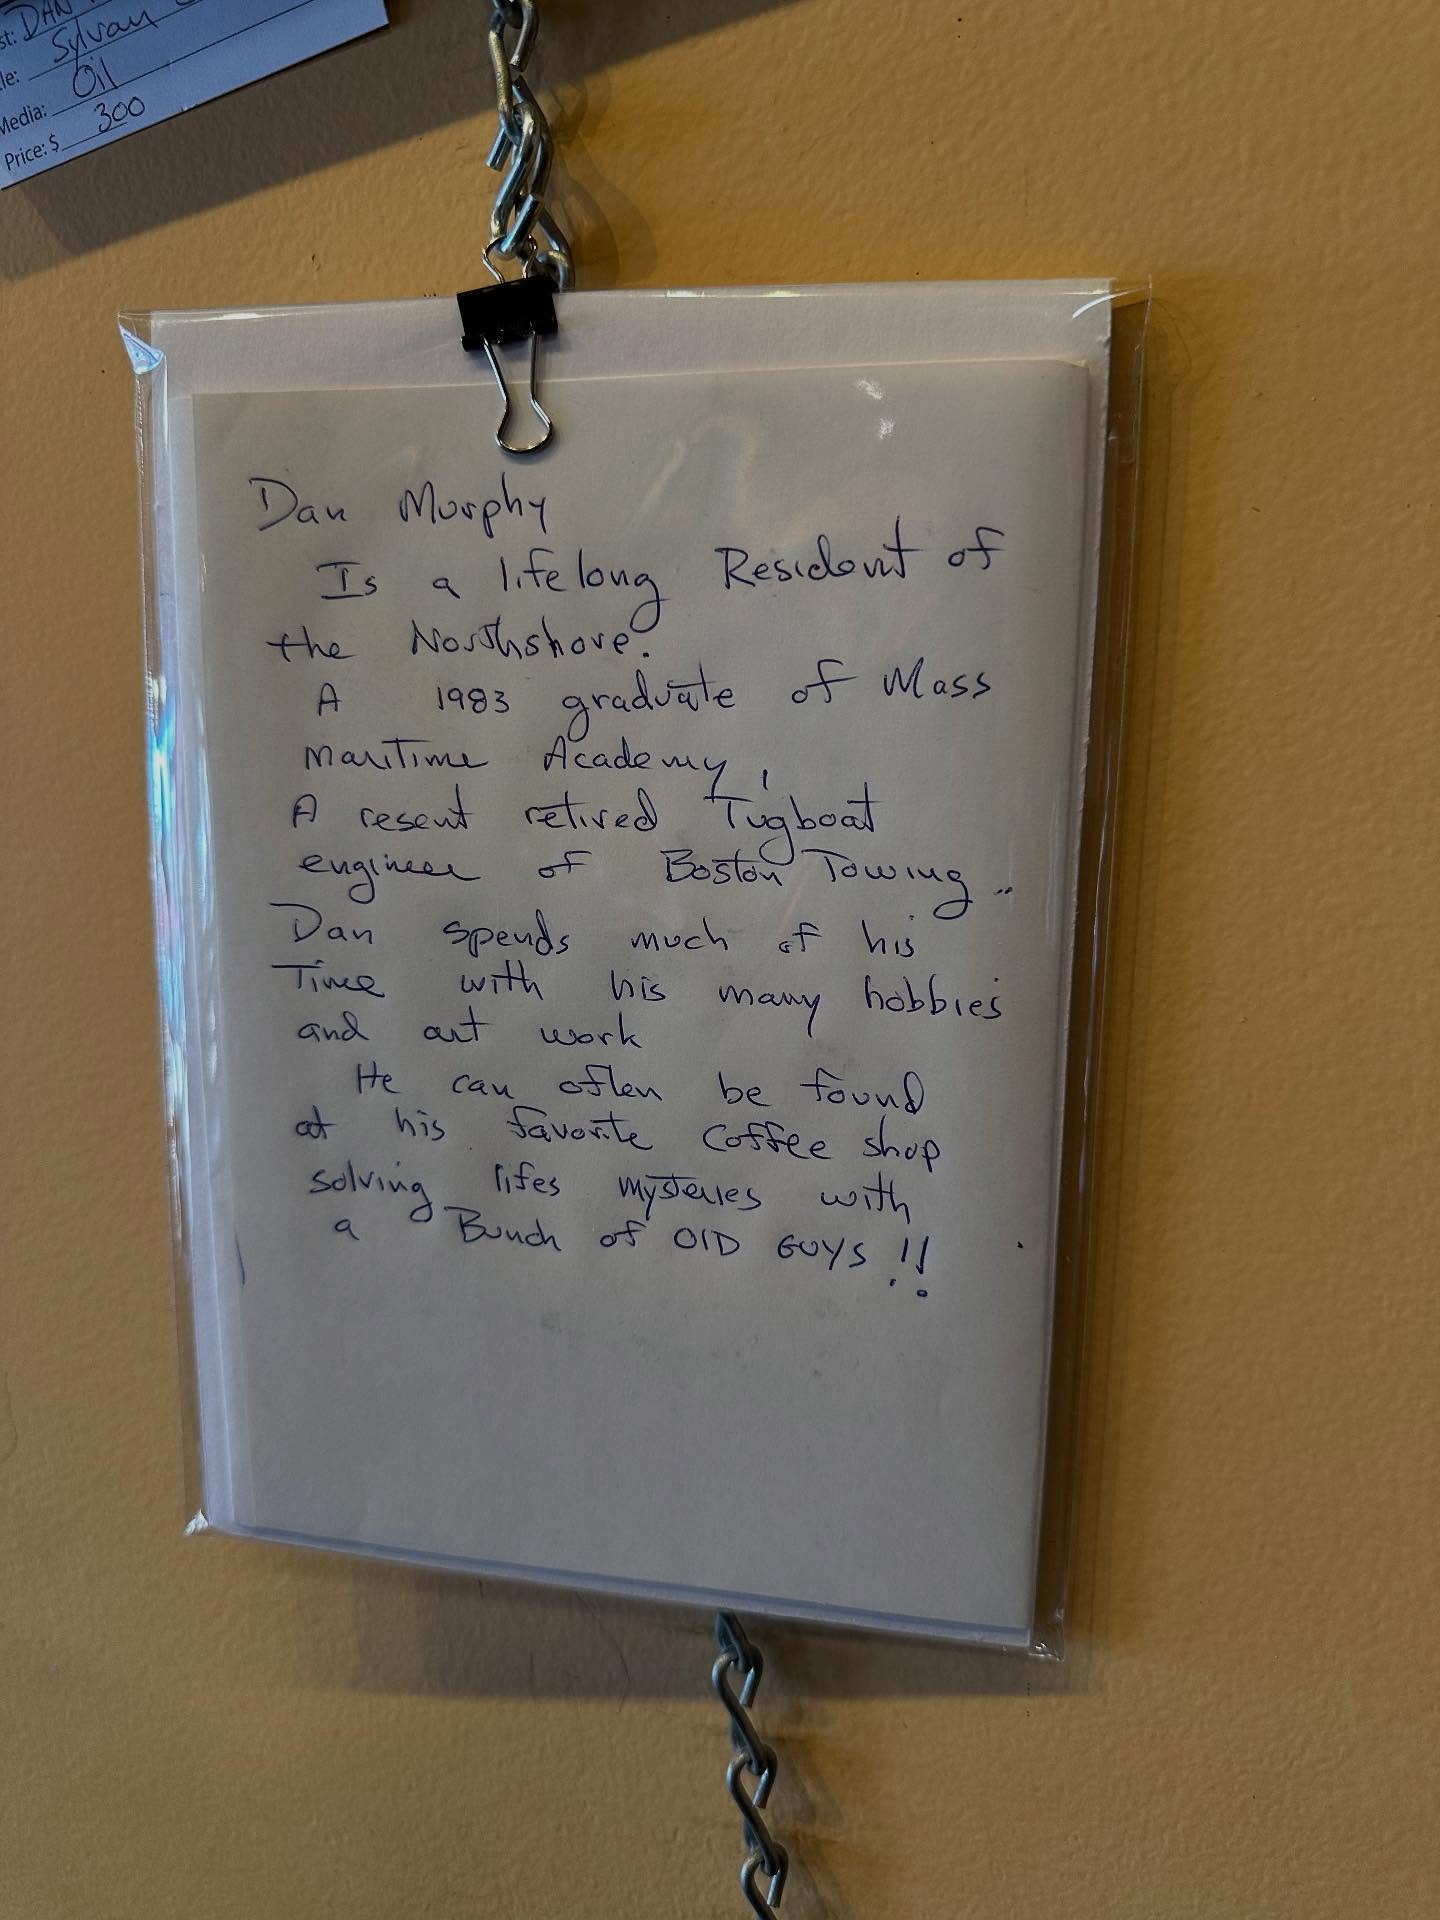 st: DAN
le: Sylvan
Media: Oil
Price: $ 300
Dan Murphy
Is a lifelong Resident of
the Northshore.
A 1983 graduate of Mass
Maritime Academy,
A resent retired Tugboat
engineer of Boston Towing..
Dan spends much of his
Time with his many hobbies
and art work
He can often be found
at his favorite Coffee shop
solving lifes mysteries with
a Bunch of OlD GUYS !!